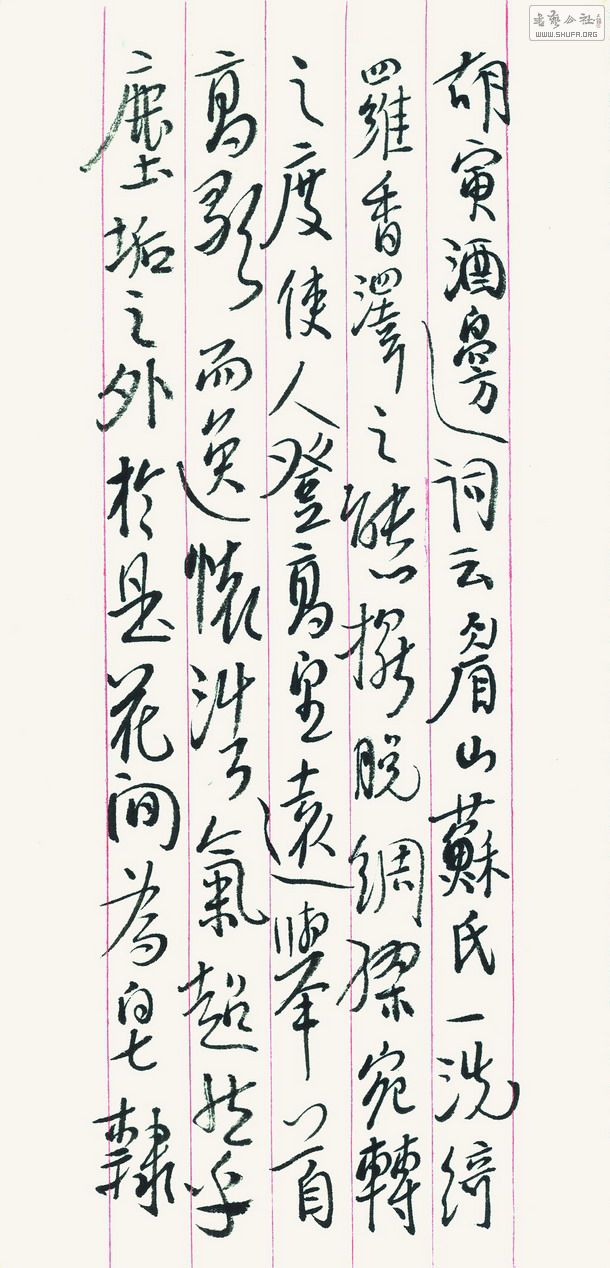 胡寅酒邊詞云眉山蘇氏一洗綺
羅香澤之態擺脫綢繆宛轉
之度使人登高望遠舉首
高歌而逸懷浩氣超然乎
塵垢之外於是花間為皂隸
書藝公社
WWW.SHUFA.ORG